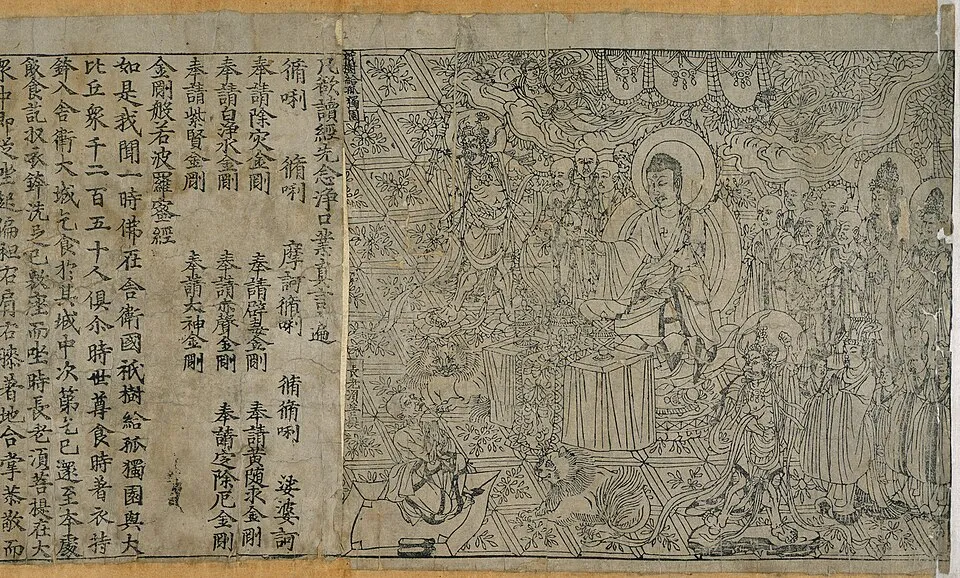 祇樹給孤獨園
長老須菩提
凡欲讀經先念淨口業真言一遍
脩唎 脩唎 摩訶脩唎 脩脩唎 娑婆訶
奉請除灾金剛 奉請辟毒金剛 奉請黃隨求金剛
奉請白淨水金剛 奉請赤聲金剛 奉請定除厄金剛
奉請紫賢金剛 奉請大神金剛
金剛般若波羅蜜經
如是我聞一時佛在舍衛國祇樹給孤獨園與大
比丘衆千二百五十人俱尒時世尊食時著衣持
鉢入舍衛大城乞食於其城中次第乞已還至本處
飯食訖收衣鉢洗足已敷座而坐時長老須菩提在大
衆中即從座起偏袒右肩右膝著地合掌恭敬而